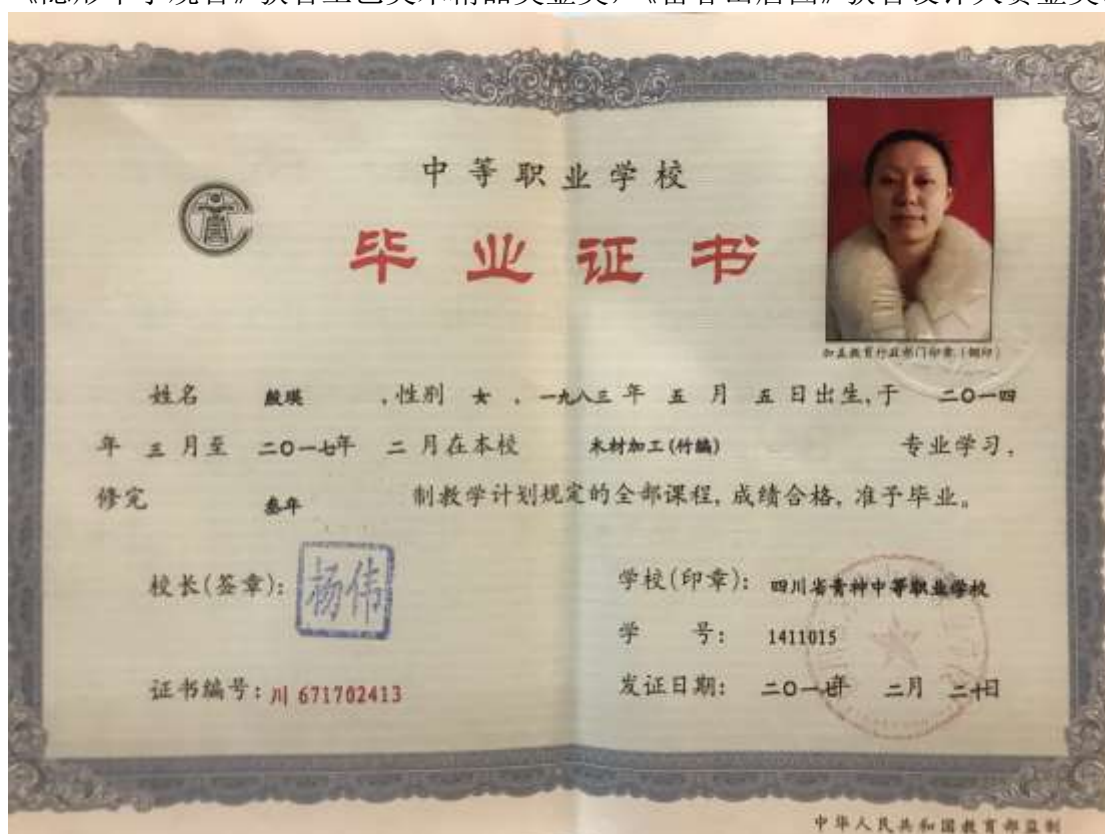 《隐形千手观音》获省工艺美术精品奖金奖，《富春山居图》获省设计大赛金奖
中等职业学校
毕业证书
加盖教育行政部门印章(钢印)
姓名 殷瑛 ,性别 女 , 一九八三 年 五 月 五 日出生,于 二〇一四
年 三 月至 二〇一七年 二 月在本校 木材加工(竹编) 专业学习,
修完 叁年 制教学计划规定的全部课程,成绩合格,准予毕业。
校长(签章): 杨伟
学校(印章): 四川省青神中等职业学校
学 号: 1411015
证书编号: 川 671702413
发证日期: 二〇一七年 二月 二十日
中华人民共和国教育部监制